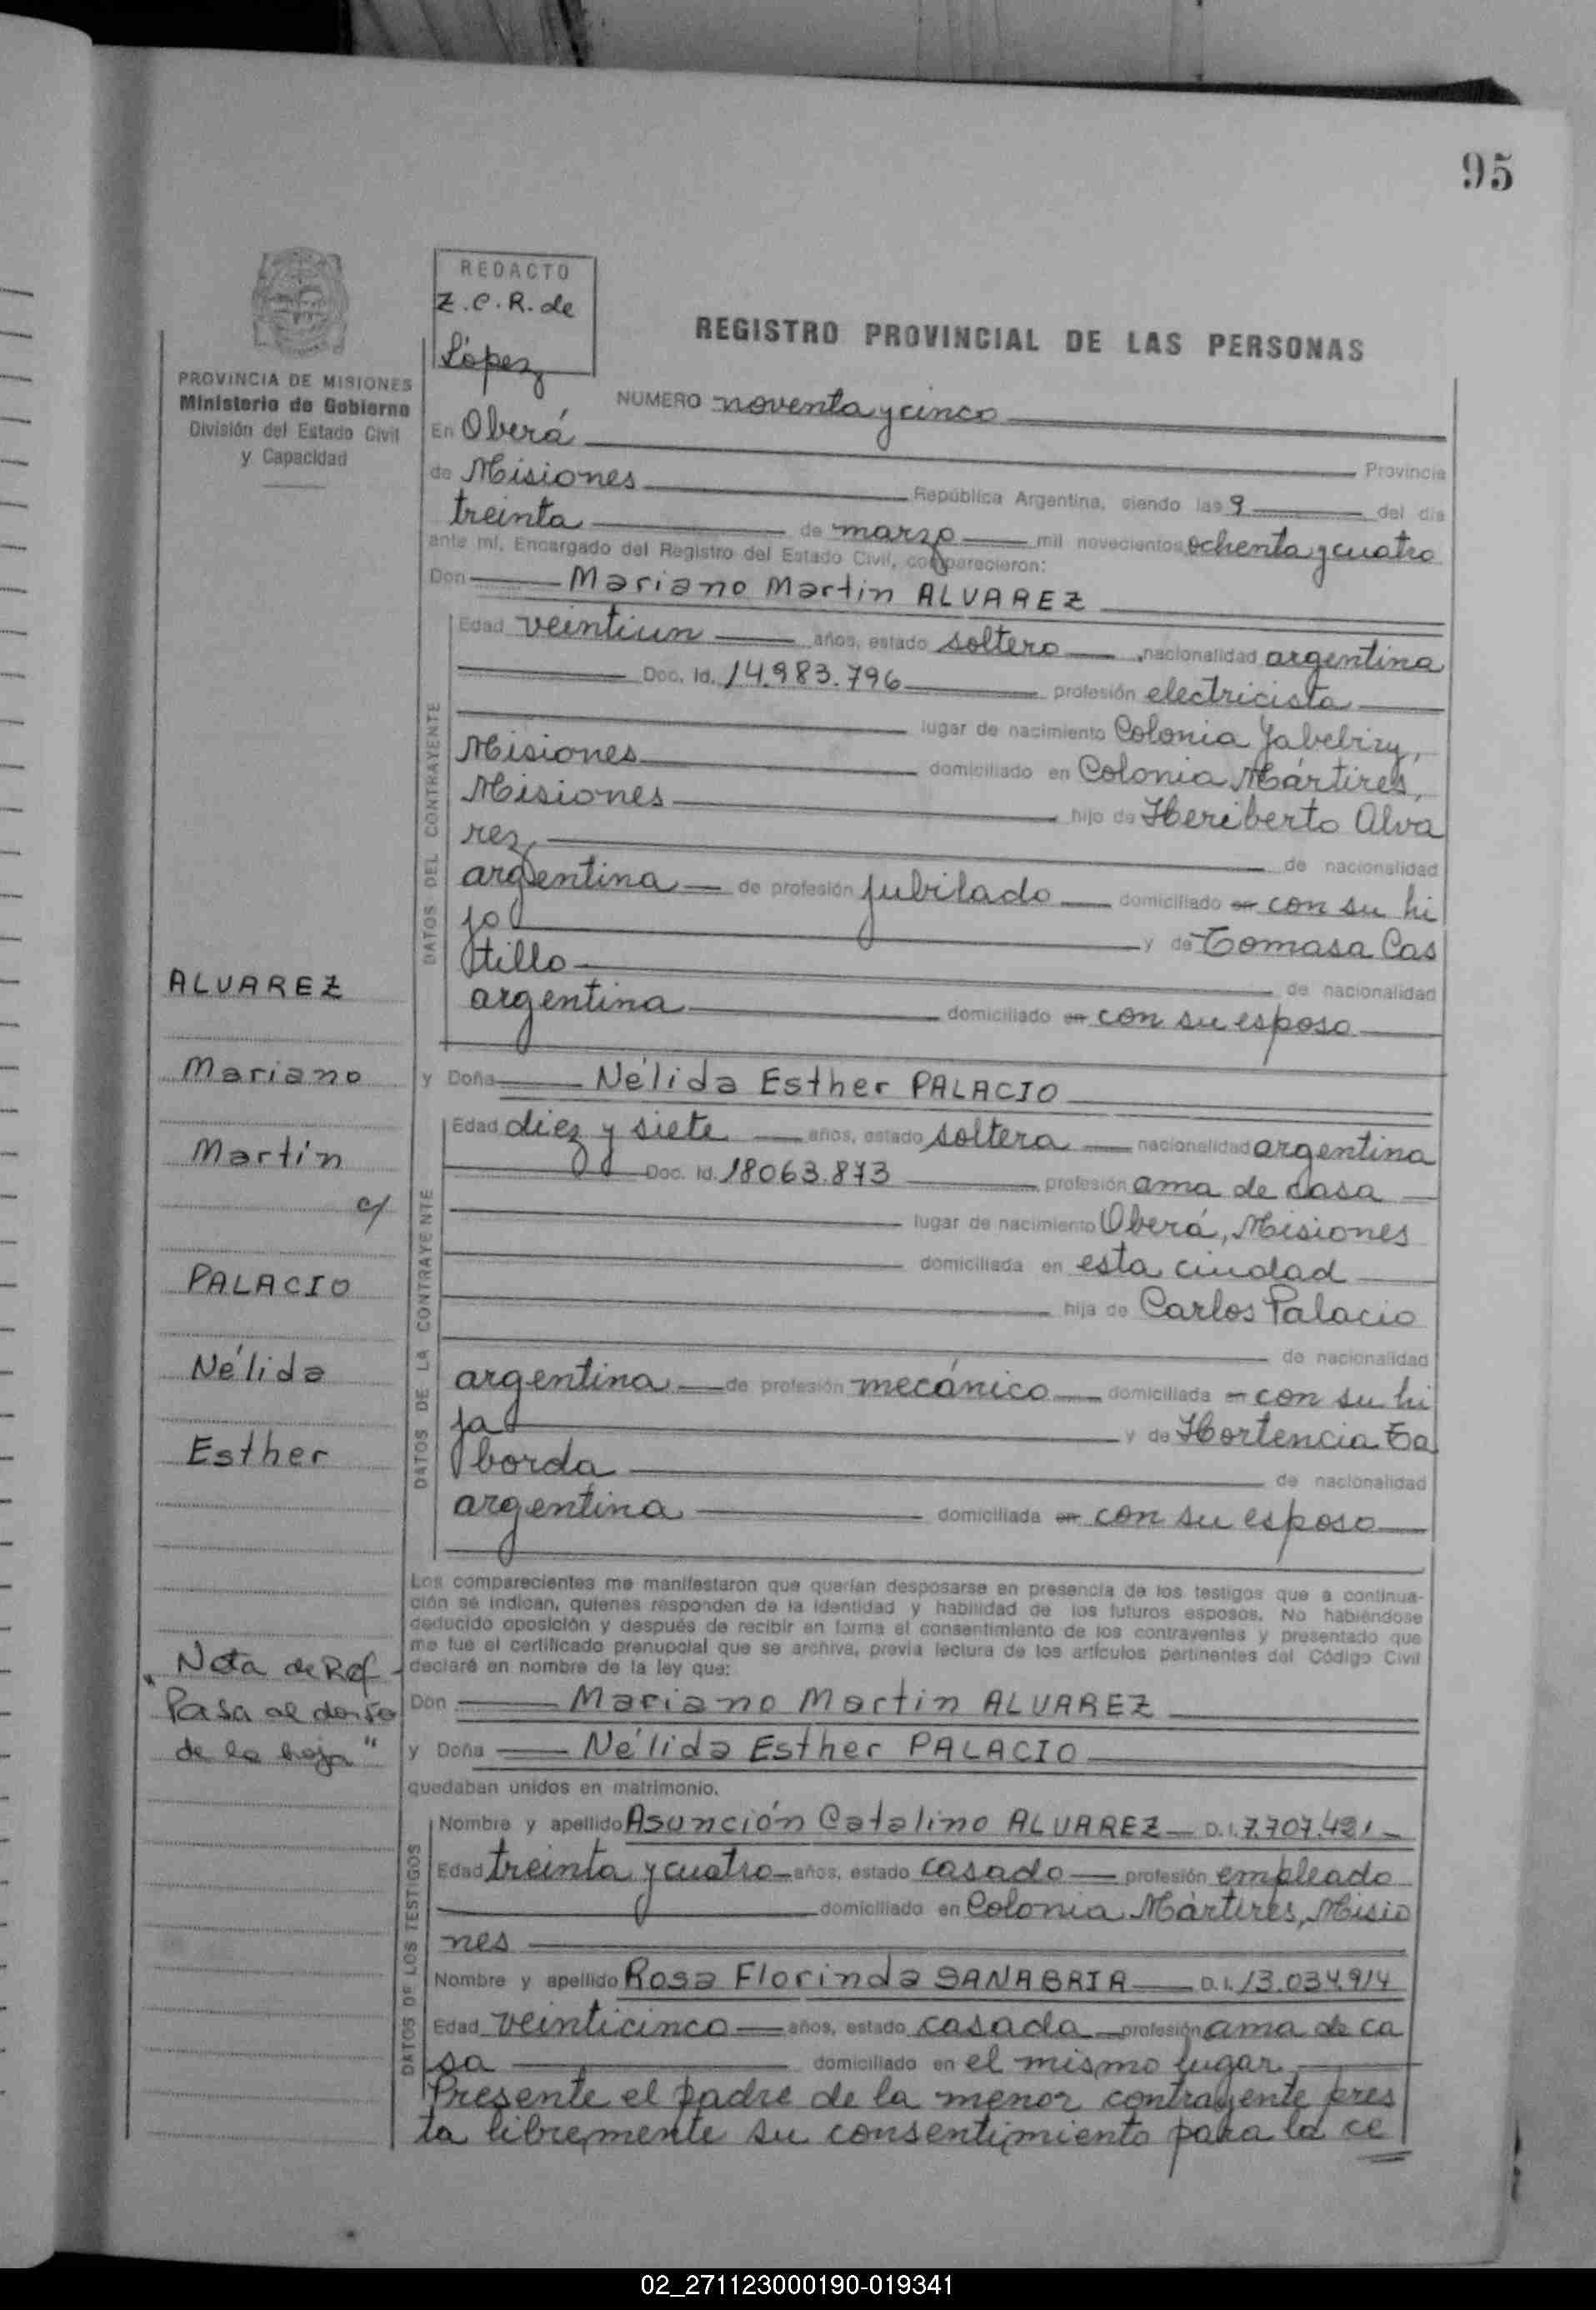 95
REDACTO
Z. C. R. de
López
REGISTRO PROVINCIAL DE LAS PERSONAS
PROVINCIA DE MISIONES
Ministerio de Gobierno
División del Estado Civil
y Capacidad
NUMERO noventa y cinco
En Oberá Provincia
de Misiones República Argentina, siendo las 9 del día
treinta de marzo mil novecientos ochenta y cuatro
ante mí, Encargado del Registro del Estado Civil, comparecieron:
Don Mariano Martin ALVAREZ
DATOS DEL CONTRAYENTE
Edad veintiun años, estado soltero, nacionalidad argentina
Doc. Id. 14.983.796 profesión electricista
lugar de nacimiento Colonia Yabebiry,
Misiones domiciliado en Colonia Mártires,
Misiones hijo de Heriberto Alva
rez de nacionalidad
argentina de profesión jubilado domiciliado en con su hi
jo y de Tomasa Cas
tillo de nacionalidad
argentina domiciliado en con su esposo
y Doña Nélida Esther PALACIO
DATOS DE LA CONTRAYENTE
Edad diez y siete años, estado soltera nacionalidad argentina
Doc. Id. 18063.873 profesión ama de casa
lugar de nacimiento Oberá, Misiones
domiciliada en esta ciudad
hija de Carlos Palacio
de nacionalidad
argentina de profesión mecánico domiciliada en con su hi
ja y de Hortencia Ta
borda de nacionalidad
argentina domiciliada en con su esposo
ALVAREZ
Mariano
Martín
c/
PALACIO
Nélida
Esther
"Nota de Ref
Pasa al dorso
de la hoja"
Los comparecientes me manifestaron que querían desposarse en presencia de los testigos que a continua-
ción se indican, quienes responden de la identidad y habilidad de los futuros esposos. No habiéndose
deducido oposición y después de recibir en forma el consentimiento de los contrayentes y presentado que
me fue el certificado prenupcial que se archiva, previa lectura de los artículos pertinentes del Código Civil
declaré en nombre de la ley que:
Don Mariano Martin ALVAREZ
y Doña Nélida Esther PALACIO
quedaban unidos en matrimonio.
DATOS DE LOS TESTIGOS
Nombre y apellido Asunción Catalino ALVAREZ D.I. 7.707.421
Edad treinta y cuatro años, estado casado profesión empleado
domiciliado en Colonia Mártires, Misio
nes
Nombre y apellido Rosa Florinda SANABRIA D.I. 13.034.914
Edad veinticinco años, estado casada profesión ama de ca
sa domiciliado en el mismo lugar
Presente el padre de la menor contrayente pres
ta libremente su consentimiento para la ce
02_271123000190-019341